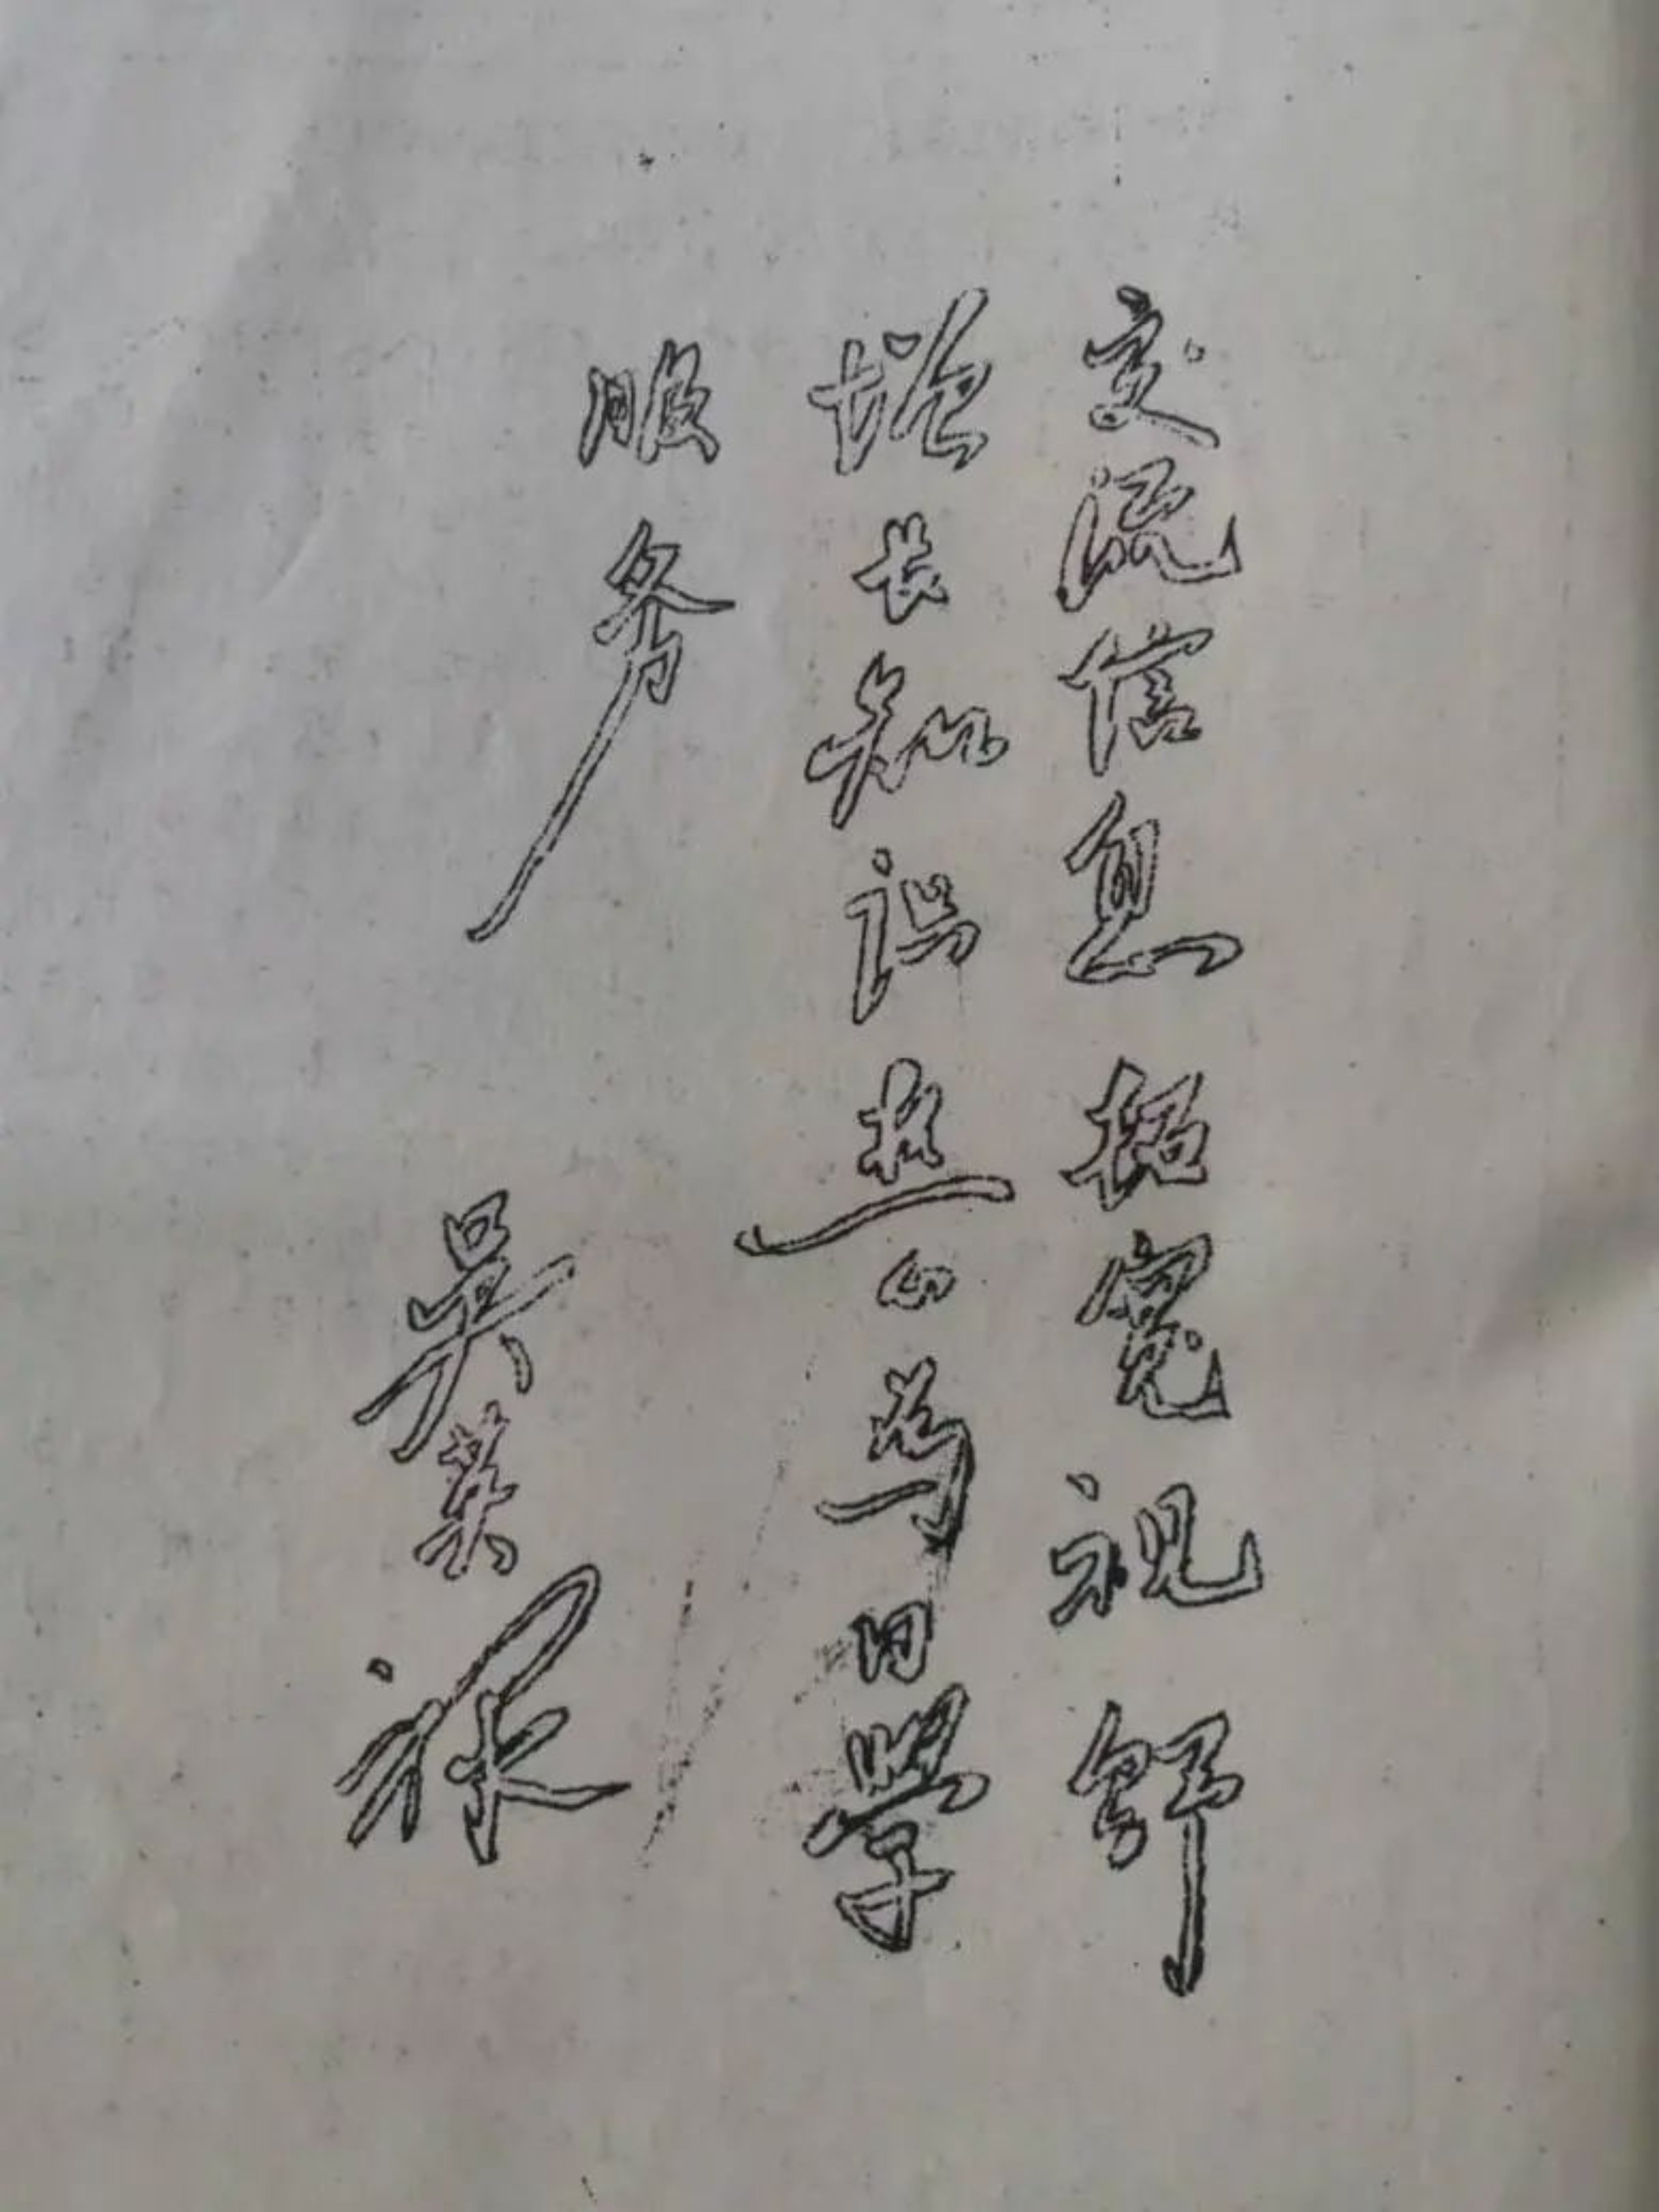 交流信息拓宽视野
增长知识热心为同学
服务
吴